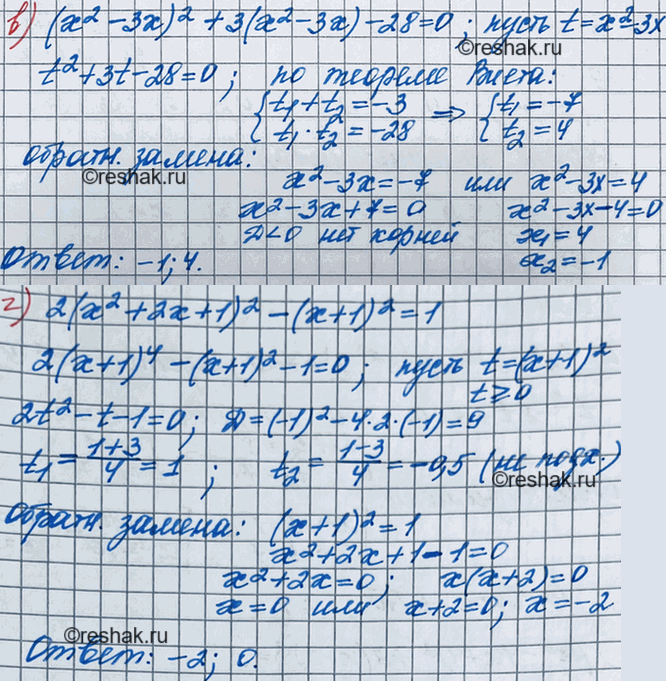 в) (x² - 3x)² + 3(x² - 3x) - 28 = 0; пусть t = x² - 3x
t² + 3t - 28 = 0; по теореме Виета:
{t₁ + t₂ = -3 ⇒ {t₁ = -7
{t₁ · t₂ = -28 {t₂ = 4
Обратн. замена:
©reshak.ru
x² - 3x = -7 или x² - 3x = 4
x² - 3x + 7 = 0 x² - 3x - 4 = 0
D < 0 нет корней x₁ = 4
x₂ = -1
Ответ: -1; 4.
г) 2(x² + 2x + 1)² - (x + 1)² = 1
2(x + 1)⁴ - (x + 1)² - 1 = 0; пусть t = (x + 1)²
t ≥ 0
2t² - t - 1 = 0; D = (-1)² - 4 · 2 · (-1) = 9
t₁ = (1+3)/4 = 1; t₂ = (1-3)/4 = -0,5 (не подх.)
©reshak.ru
Обратн. замена: (x + 1)² = 1
x² + 2x + 1 - 1 = 0
x² + 2x = 0; x(x + 2) = 0
x = 0 или x + 2 = 0; x = -2
©reshak.ru
Ответ: -2; 0.
©reshak.ru